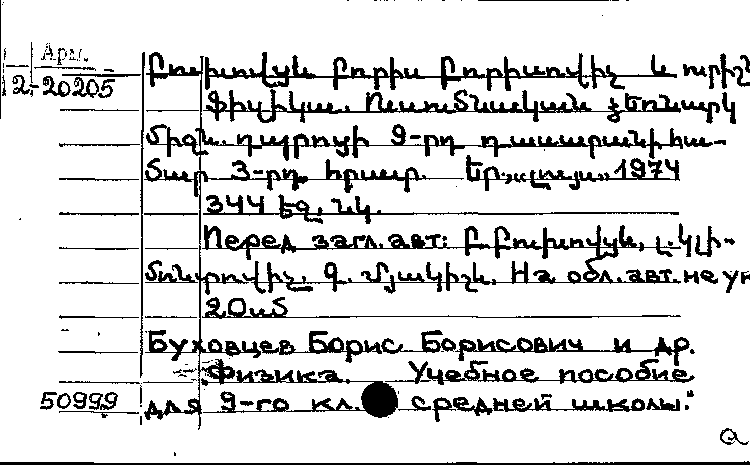 Арм.
2-20205
Բուխովցև Բորիս Բորիսովիչ և ուրիշ
Ֆիզիկա. Ուսումնական ձեռնարկ
միջն. դպրոցի 9-րդ դասարանի հա-
մար 3-րդ. հրատ. Եր., «Լույս» 1974
344 էջ, նկ.
Перед загл. авт: Բ. Բուխովցև, Յ. Կլի-
մոնտովիչ, Գ. Մյակիշև. На обл. авт. не ук
20մ
Буховцев Борис Борисович и др.
Физика. Учебное пособие
50999 для 9-го кл. средней школы."
а